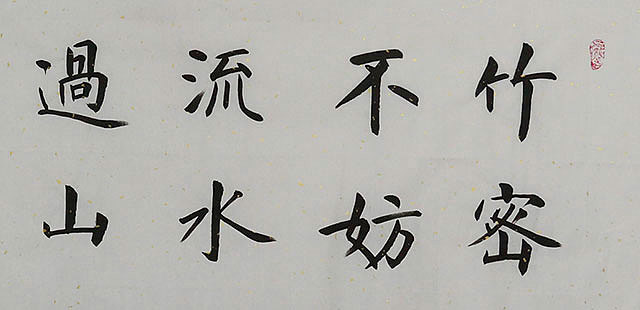 竹密
不妨
流水
過山